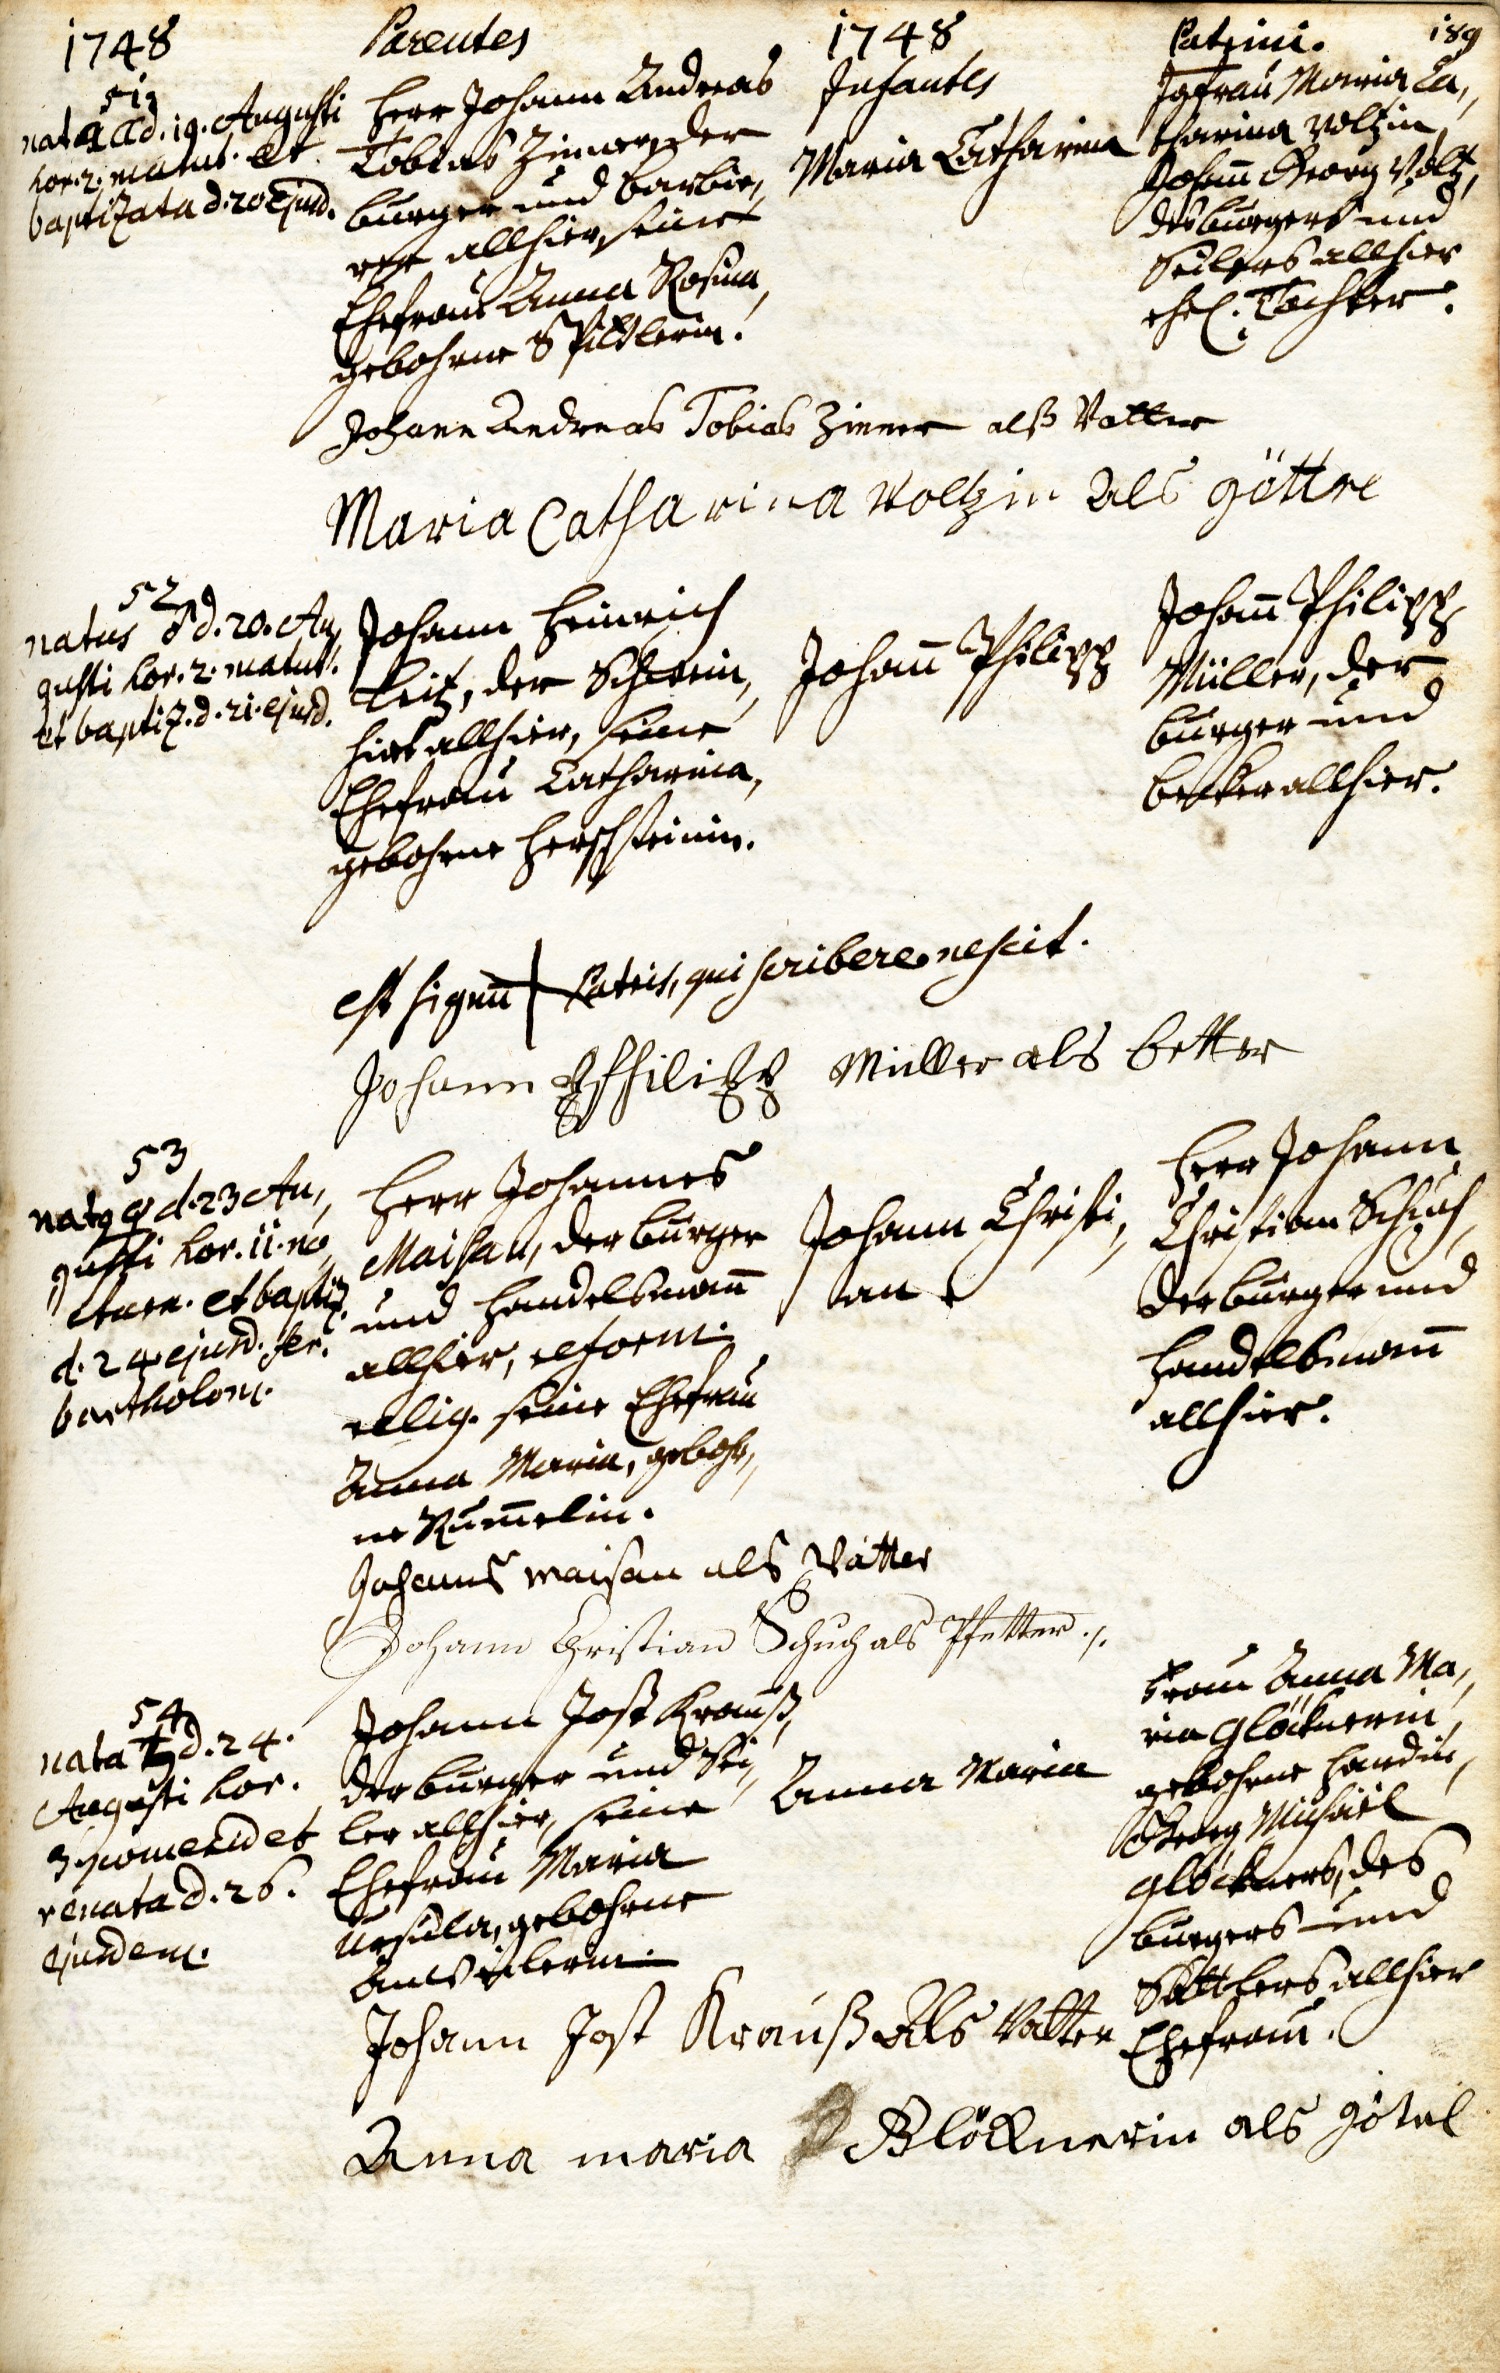 1748
Parentes
1748
Infantes
Patrini.
189
51
nata d. 19. Augusti
hor. 2. matut. et
baptizata d. 20 Ejusd.
Herr Johann Andreas
Tobias Zimer, der
burger und barbie,
rer allhier, seine
Ehefrau Anna Rosina,
gebohrne Spittlerin.
Maria Catharina
Jgfrau Maria Ca,
tharina Voltzin,
Johann Georg Voltz,
des burgers und
Seilers allhier
ehel. Tochter.
Johann Andreas Tobias Zimer alß Vatter
Maria Catharina Voltzin Als göttre
52
natus ♂ d. 20. Au,
gusti hor. 2. matut.
et baptiz. d. 21. ejusd.
Johann Heinrich
der Schwein,
hirt allhier, seine
Ehefrau Catharina,
gebohrne Hersch steinin.
Johann Philipp
Johann Philipp
Müller, der
burger und
becker allhier.
est signū + Patris, qui scribere nescit.
Johann Philipp Müller als better
53
nat9 ♀ d. 23 Au,
gusti hor. 11. no,
cturn. et baptiz.
d. 24 ejusd. fer.
bartholom.
Herr Johannes
Maisan, der burger
und handelsmann
allhier, reform.
relig. seine Ehefrau
Anna Maria, gebohr,
ne Rummelin.
Johann Christi,
an
Herr Johann
Christian Schuch,
der burger und
handelsmann
allhier.
Johannes Maisan als Vatter
Johann Christian Schuch als Pfetter ./.
54
nata ♄ d. 24.
Augusti hor.
3 pomerid et
renata d. 26.
ejusdem.
Johann Jost Krauß,
der burger und Sei,
ler allhier, seine
Ehefrau Maria
Ursula, gebohrne
Anna Maria
Frau Anna Ma,
ria Glöcknerin,
gebohrne Hardin,
Georg Michäel
Glöckners, des
burgers und
Sattlers allhier
Ehefrau.
Johann Jost Krauß Als Vatter
Anna maria Glöcknerin als götel